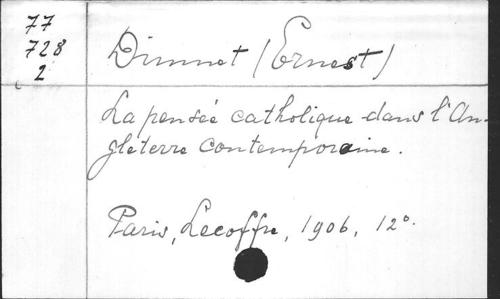 77
728
2
Dimnet (Ernest)
La pensée catholique dans l'An-
gleterre contemporaine.
Paris, Lecoffre, 1906, 12°.